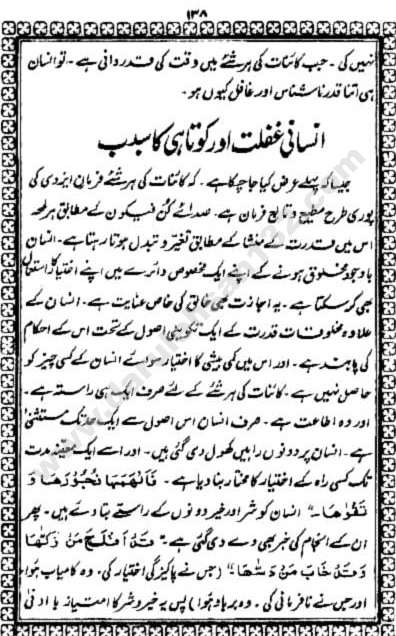 ۱۳۸
نہیں کی ۔ جب کائنات کی ہر شئے میں وقت کی قدر دانی ہے ۔ تو انسان
ہی اتنا قدر ناشناس اور غافل کیوں ہو ۔
انسانی غفلت اور کوتاہی کا سبب
جیسا کہ پہلے عرض کیا جا چکا ہے ۔ کہ کائنات کی ہر شئے فرمان ایزدی کی
پوری طرح مطیع و تابع فرمان ہے ۔ صدائے کن فیکون کے مطابق ہر لمحہ
اس میں قدرت کے منشا کے مطابق تغیر و تبدل ہوتا رہتا ہے ۔ انسان
باوجود مخلوق ہونے کے اپنے ایک مخصوص دائرے میں اپنے اختیار کا استعمال
بھی کر سکتا ہے ۔ یہ اجازت بھی خالق کی خاص عنایت ہے ۔ انسان کے
علاوہ مخلوقات قدرت کے ایک تکوینی اصول کے تحت اس کے احکام
کی پابند ہے ۔ اور اس میں کمی بیشی کا اختیار سوائے انسان کے کسی چیز کو
حاصل نہیں ہے ۔ کائنات کی ہر شئے کے لئے صرف ایک ہی راستہ ہے ۔
اور وہ اطاعت ہے ۔ صرف انسان اس اصول سے ایک حد تک مستثنیٰ
ہے ۔ انسان پر دونوں راہیں کھول دی گئی ہیں ۔ اور اسے ایک معینہ مدت
تک کسی راہ کے اختیار کا مختار بنا دیا ہے ۔ فَاَلْهَمَهَا فُجُوْرَهَا وَ
تَقْوٰهَا ۔" انسان کو شر اور خیر دونوں کے راستے بتا دئے ہیں ۔ پھر
ان کے انجام کی خبر بھی دے دی گئی ہے ۔" قَدْ اَفْلَحَ مَنْ زَكّٰهَا
وَقَدْ خَابَ مَنْ دَسّٰهَا ۔" (جس نے پاکیزگی اختیار کی ۔ وہ کامیاب ہوا
اور جس نے نافرمانی کی ۔ وہ برباد ہوا) پس یہ خیر و شر کا امتیاز یا ادنیٰ